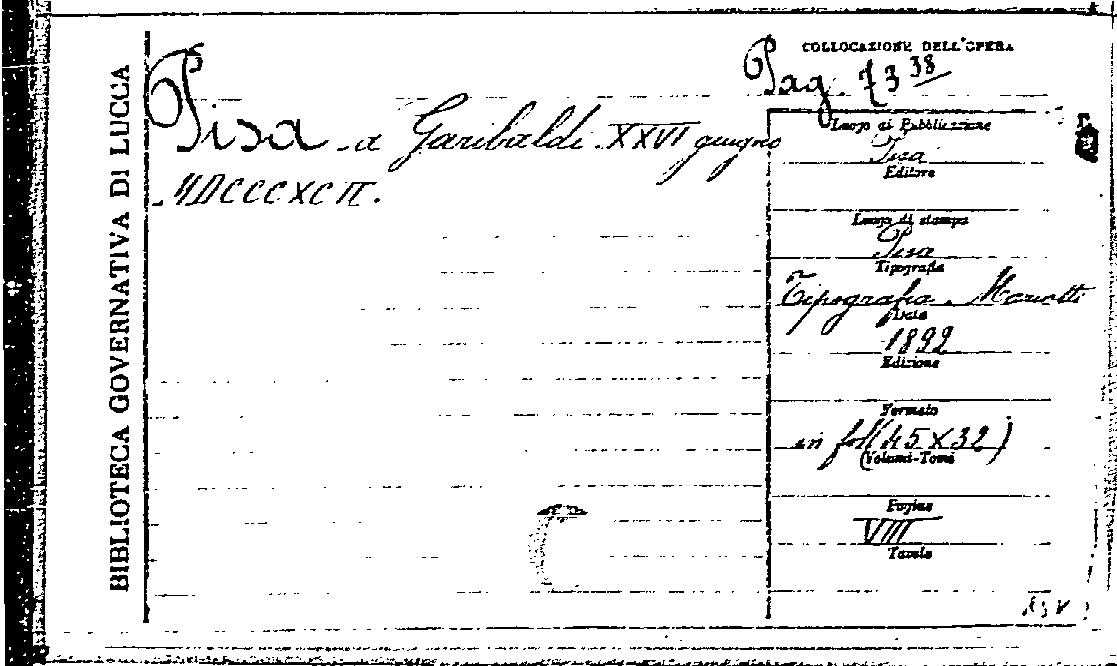 BIBLIOTECA GOVERNATIVA DI LUCCA
COLLOCAZIONE DELL'OPERA
Pag. 73 38
Pisa a Garibaldi XXVI giugno
MDCCCXCII.
Luogo di Pubblicazione
Pisa
Editore
Luogo di stampa
Pisa
Tipografia
Tipografia Mariotti
Data
1892
Edizione
Formato
in fol (45 X 32)
(Volumi-Tomi
Pagine
VIII
Tavole